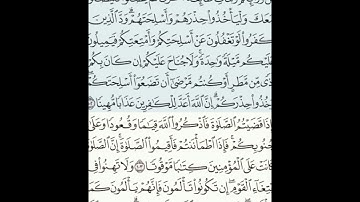 مَعَكَ وَلْيَأْخُذُوا۟ حِذْرَهُمْ وَأَسْلِحَتَهُمْ ۗ وَدَّ ٱلَّذِينَ
كَفَرُوا۟ لَوْ تَغْفُلُونَ عَنْ أَسْلِحَتِكُمْ وَأَمْتِعَتِكُمْ فَيَمِيلُونَ
عَلَيْكُم مَّيْلَةً وَٰحِدَةً ۚ وَلَا جُنَاحَ عَلَيْكُمْ إِن كَانَ بِكُمْ
أَذًى مِّن مَّطَرٍ أَوْ كُنتُم مَّرْضَىٰٓ أَن تَضَعُوٓا۟ أَسْلِحَتَكُمْ ۖ
وَخُذُوا۟ حِذْرَكُمْ ۗ إِنَّ ٱللَّهَ أَعَدَّ لِلْكَٰفِرِينَ عَذَابًا مُّهِينًا
فَإِذَا قَضَيْتُمُ ٱلصَّلَوٰةَ فَٱذْكُرُوا۟ ٱللَّهَ قِيَٰمًا وَقُعُودًا وَعَلَىٰ
جُنُوبِكُمْ ۚ فَإِذَا ٱطْمَأْنَنتُمْ فَأَقِيمُوا۟ ٱلصَّلَوٰةَ ۚ إِنَّ ٱلصَّلَوٰةَ
كَانَتْ عَلَى ٱلْمُؤْمِنِينَ كِتَٰبًا مَّوْقُوتًا ١٠٣ وَلَا تَهِنُوا۟ فِى
ٱبْتِغَآءِ ٱلْقَوْمِ ۖ إِن تَكُونُوا۟ تَأْلَمُونَ فَإِنَّهُمْ يَأْلَمُونَ كَمَا